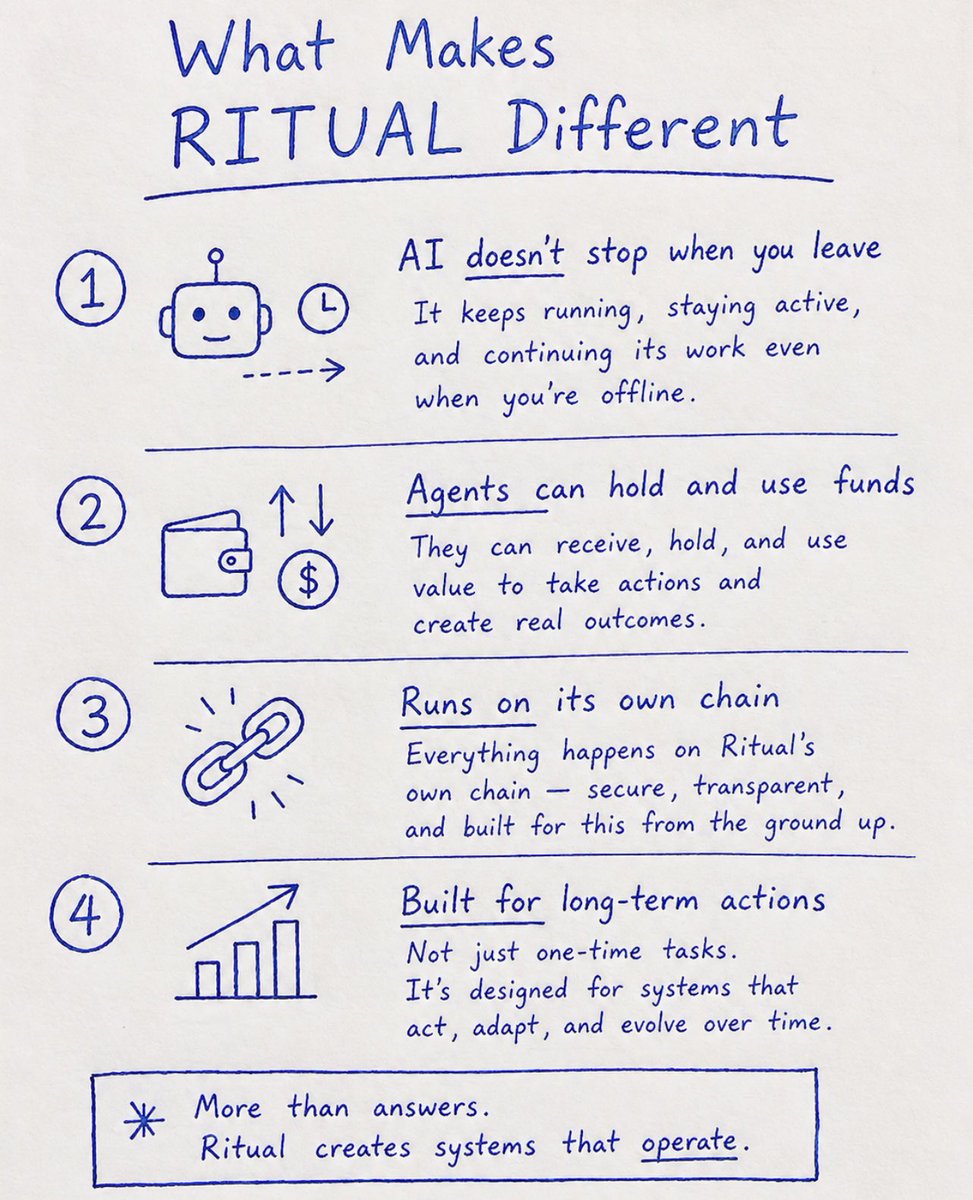 What Makes
RITUAL Different
1
AI doesn't stop when you leave
It keeps running, staying active,
and continuing its work even
when you're offline.
2
$
Agents can hold and use funds
They can receive, hold, and use
value to take actions and
create real outcomes.
3
Runs on its own chain
Everything happens on Ritual's
own chain — secure, transparent,
and built for this from the ground up.
4
Built for long-term actions
Not just one-time tasks.
It's designed for systems that
act, adapt, and evolve over time.
* More than answers.
Ritual creates systems that operate.